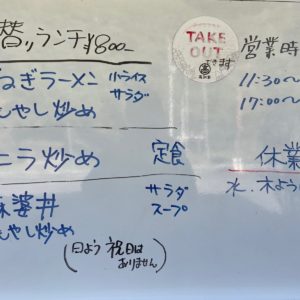 替りランチ ¥800-
ねぎラーメン 小ライス サラダ
もやし炒め
ニラ炒め 定食
麻婆丼 サラダ スープ
もやし炒め
(日よう 祝日は ありません)
TAKE OUT
できます
営業時
11:30〜
17:00〜
休業
水.木よう